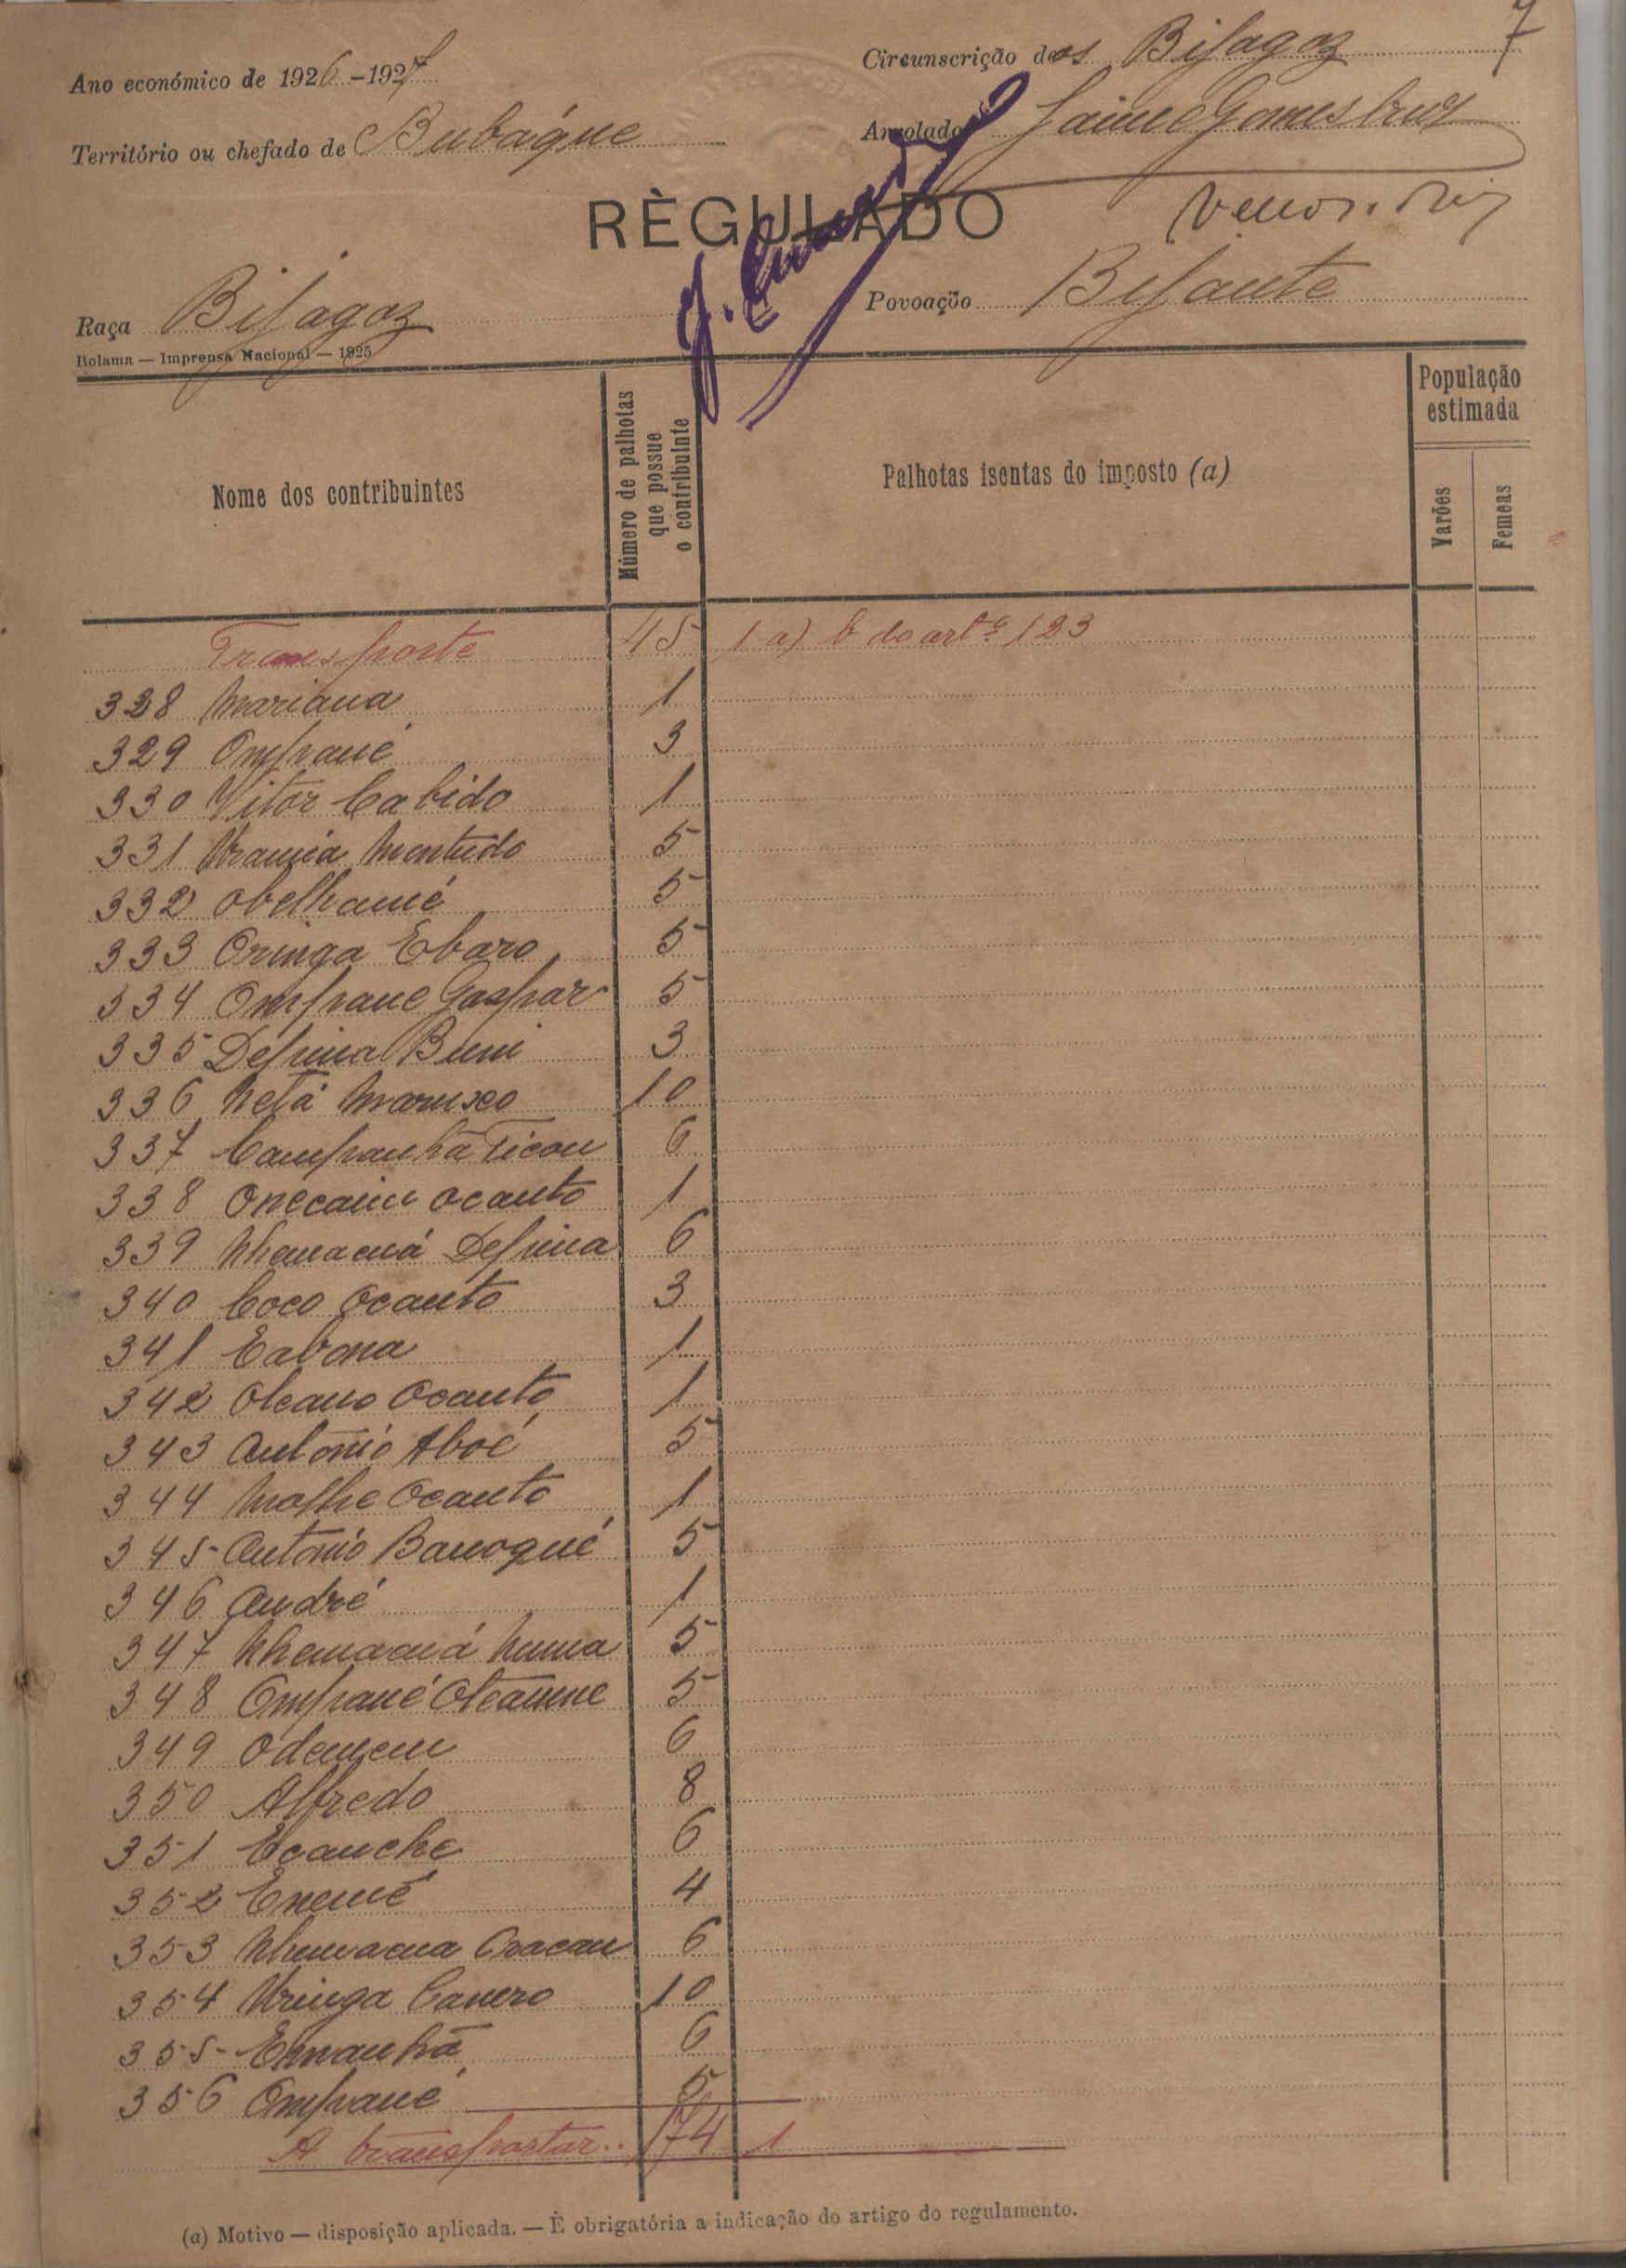 7
Ano económico de 1926-1927
Circunscrição dos Bijagoz
Território ou chefado de Bubáque
Arrolador Jaime Gomes
RÈGULADO
Raça Bijagoz
Povoação Bijante
Bolama — Imprensa Nacional — 1925
Nome dos contribuintes
Número de palhotas
que possue
o contribuinte
Palhotas isentas do imposto (a)
População
estimada
Varões
Femeas
Transporte 45 1 a) b do artº 123
328 Mariana 1
329 Ompané 3
330 Vitor Cabido 1
331 Urania Mentudo 5
332 Obelhamé 5
333 Oringa Ebaro 5
334 Ompane Gaspar 5
335 Defuna Buni 3
336 Netá 10
337 Campanhã Ticou 6
338 Onecaim Ocanto 1
339 Nhamacuá Defuna 6
340 Coco Ocanto 3
341 Eabona 1
342 Oleano Ocanto 1
343 António Aboé 5
344 Ocanto 1
345 António Banoqué 5
346 André 1
347 Nhamacuá Numa 5
348 Ompané 5
349 Odemem 6
350 Alfredo 8
351 Ecanche 6
352 Enemé 4
353 6
354 Uringa Canero 10
355 Ernanhã 6
356 Ompané 5
A transportar.. 174 1
(a) Motivo — disposição aplicada. — È obrigatória a indicação do artigo do regulamento.